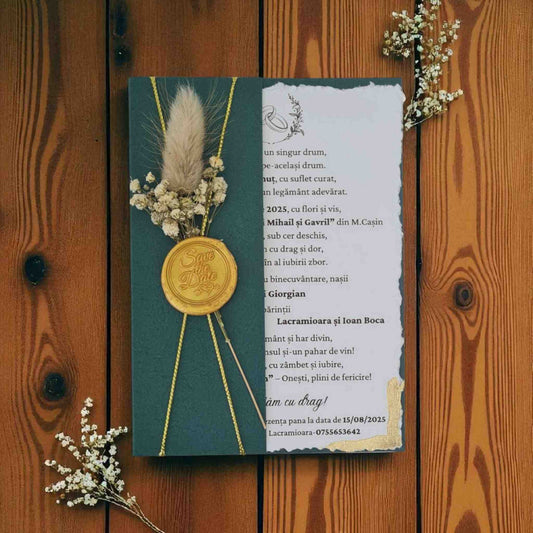 Save
the
Date
un singur drum,
pe-același drum.
nuț, cu suflet curat,
un legământ adevărat.
2025, cu flori și vis,
Mihail și Gavril” din M.Cașin
, sub cer deschis,
n cu drag și dor,
în al iubirii zbor.
u binecuvântare, nașii
i Giorgian
părinții
Lacramioara și Ioan Boca
mânt și har divin,
nsul și-un pahar de vin!
, cu zâmbet și iubire,
” – Onești, plini de fericire!
m cu drag!
ezența pana la data de 15/08/2025
Lacramioara-0755653642